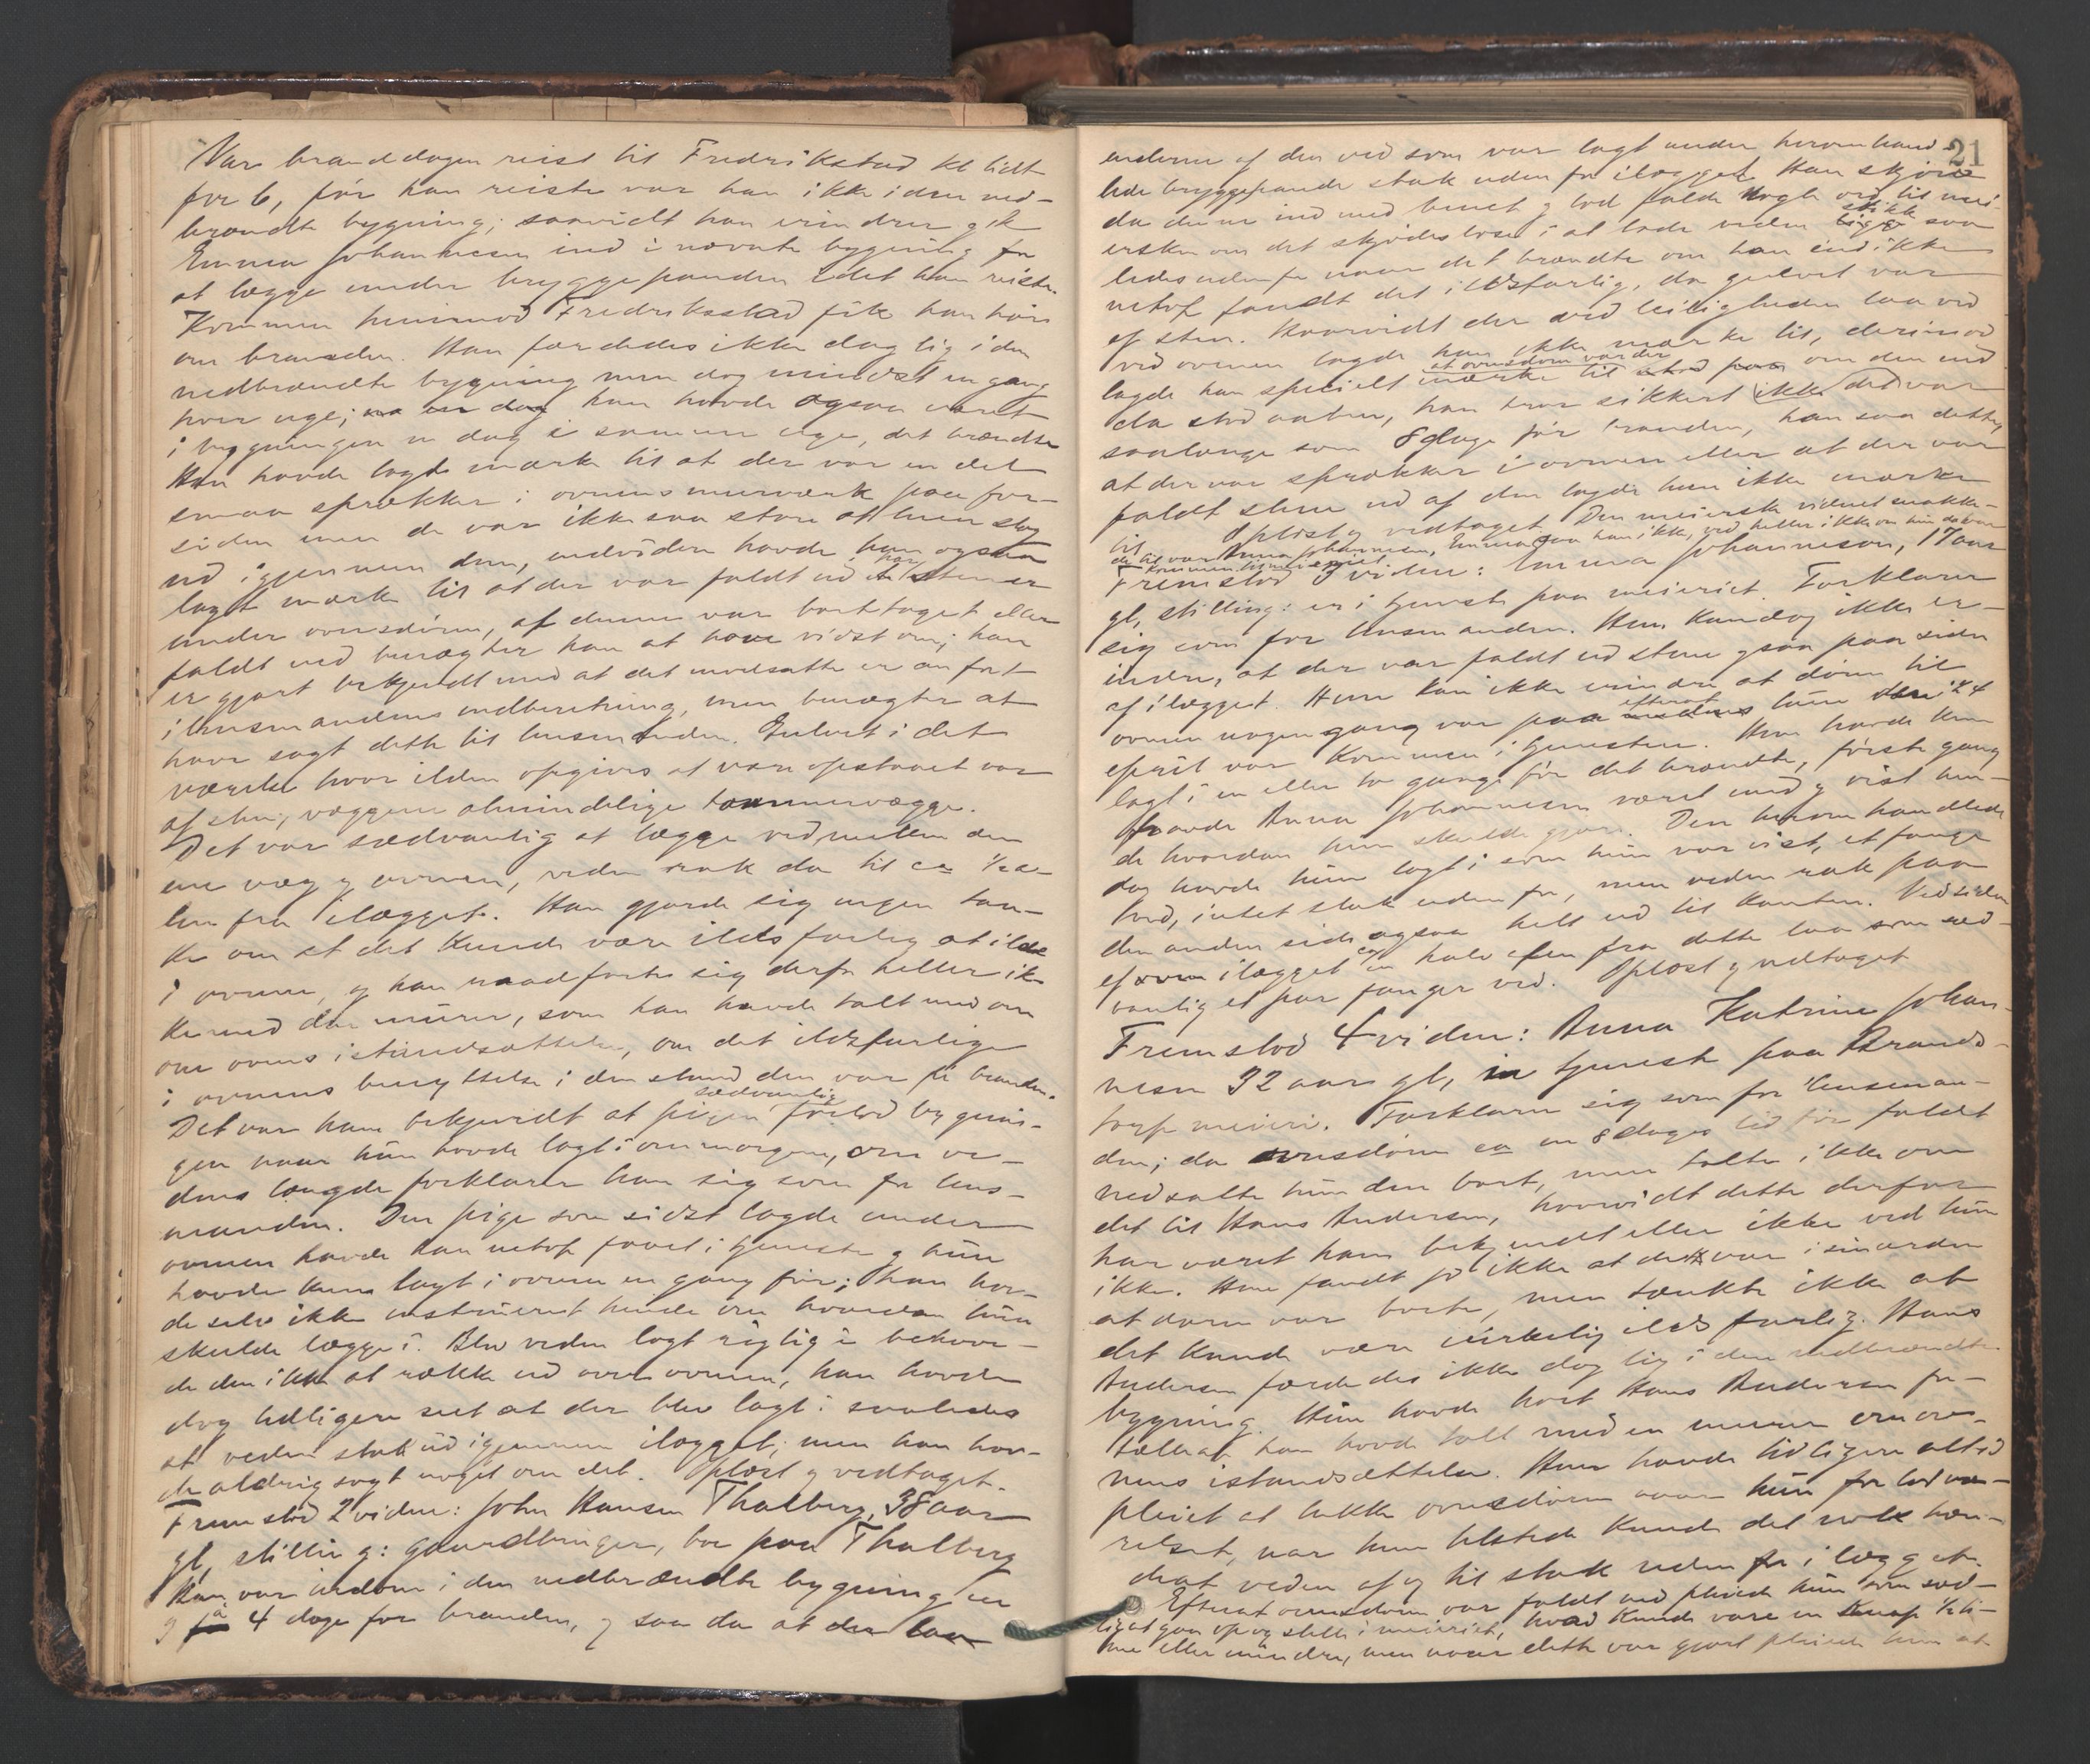 Var branddagen reist til Fredrikstad kl lidt
før 6, før han reiste var han ikke i den ned-
brændte bygning; saavidt han erindrer gik
Emma Johannesen ind i nævnte bygning for
at lægge under bryggepanden idet han reiste.
Kommen henimod Fredriksstad fik han høre
om branden. Han færdedes ikke daglig i den
nedbrændte bygning men dog mindst en gang
hver uge; han havde ogsaa været
i bygningen en dag i samme uge, det brændte
Han havde lagt mærke til at der var en del
smaa sprækker i ovnens murværk paa for-
siden men de var ikke saa store at luen slog
ud igjennem dem, endvidere havde han ogsaa
lagt mærke til at der var faldt ud et par stener
under ovnsdøren, at denne var borttaget eller
faldt ned benægter han at have vidst om; han
er gjort bekjendt med at det modsatte er anført
i lensmandens indberetning, men benægter at
have sagt dette til lensmanden. Gulvet i det
værelse hvor ilden opgives at være opstaaet var
af sten, væggene almindelige tømmervægge.
Det var sædvanlig at lægge ved mellem den
ene væg og ovnen, veden rak da til ca ½ a-
len fra ilægget. Han gjorde sig ingen tan-
ke om at det kunde være ildsfarlig at ilde
i ovnen, og han raadførte sig derfor heller ik-
ke med den murer, som han havde talt med om
om ovnens istandsættelse, om det ildsfarlige
i ovnens benyttelse i den stand den var før branden.
Det var ham bekjendt at pigen sædvanlig forlod bygnin-
gen naar hun havde lagt i om morgenen, om ve-
dens længde forklarer han sig som for lens-
manden. Den pige som sidst lagde under
ovnen havde han netop faaet i tjeneste og hun
havde kun lagt i ovnen en gang før; han hav-
de selv ikke instrueret hende om hvordan hun
skulde lægge i. Blev veden lagt rigtig i behøve-
de den ikke at række ud over ovnen, han havde
dog tidligere seet at der blev lagt i saaledes
at veden stak ud igjennem ilægget; men han hav-
de aldrig sagt noget om det. Oplæst og vedtaget.
Fremstod 2 vidne: John Hansen Thalberg, 38 aar
gl, stilling: gaardbruger, bor paa Thalberg
Han var indom i den nedbrændte bygning en
3 à 4 dage før branden, og saa da at der laa
21
enderne af den ved som var lagt under heromhand-
lede bryggepande stak uden for ilægget. Han skjøv
da denne ind med benet og lod falde nogle ord til mei-
ersken om det skjødesløse i at lade veden stikke saa-
ledes udenfor naar det brændte om han end ikke
netop fandt det ildsfarlig, da gulvet var
af sten. Hvorvidt der ved leiligheden laa ved
ved ovnen lagde han ikke mærke til, derimod
lagde han specielt mærke til at ovnsdøren var der om den end
da stod aaben, han tror sikkert ikke det var
saalænge som 8 dage før branden, han saa dette,
at der var sprækker i ovnen eller at der var
faldt stene ud af den lagde han ikke mærke
til. Oplæst og vedtaget. Den meierske vidnet snakke-
de til var Anna Johannesen, Emma saa han ikke, ved heller ikke om hun da var
kommen til meieriet.
Fremstod 3 vidne: Emma Johannesen, 17 aar
gl, stilling: er i tjeneste paa meieriet. Forklarer
sig som for lensmanden. Hun kan dog ikke er-
indre, at der var faldt ud stene ogsaa paa siden
af ilægget. Hun kan ikke erindre at døren til
ovnen nogengang var paa efterat hun den 14
april var kommen i tjenesten. Hun havde kun
lagt i en eller to gange før det brændte, første gang
havde Anna Johannesen været med og vist hen-
de hvordan hun skulde gjøre. Den heromhandlede
dag havde hun lagt i som hun var vist, et fange
ved, intet stak udenfor, men veden rak paa
den anden side ogsaa helt ud til kanten. Ved siden
af ilægget ca en halv alen fra dette laa som sæd-
vanlig et par fanger ved. Oplæst og vedtaget
Fremstod 4 vidne: Anna Katrine Johan-
nesen 32 aar gl, i tjeneste paa Brands-
torp meieri. Forklarer sig som for lensman-
den; da ovnsdøren ca en 8 dages tid før faldt
ned satte hun den bort, men talte ikke om
det til Hans Andersen, hvorvidt dette derfor
har været ham bekjendt eller ikke ved hun
ikke. Hun fandt jo ikke at det var i sin orden
at døren var borte, men tænkte ikke at
det kunde være virkelig ildsfarlig. Hans
Andersen færdedes ikke daglig i den nedbrændte
bygning. Hun havde hørt Hans Andersen for-
tælle at han havde talt med en murer om ov-
nens istandsættelse. Hun havde tidligere altid
pleiet at lukke ovnsdøren naar hun forlod væ-
relset, var hun tilstede kunde det nok hæn-
de at veden af og til stak uden for ilægget.
Efterat ovnsdøren var faldt ned pleiede hun som sæd-
lig at gaa op og stelle i meieriet, hvad kunde være en knap ½ ti-
me eller mindre, men naar dette var gjort pleiede hun at